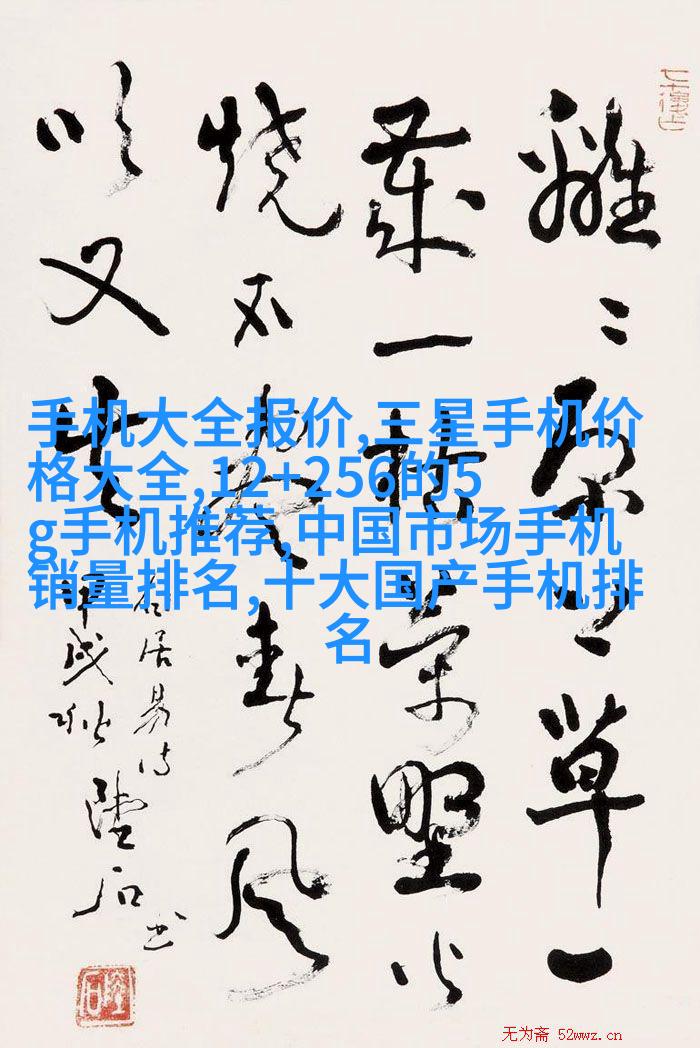 離〻原上草一
歲一枯榮野火
烧不盡春風
吹又生
白居易诗
甲戌秋
石书
手机大全报价,三星手机价
格大全,12+256的5
g手机推荐,中国市场手机
销量排名,十大国产手机排
名
无为斋 52wwz.cn